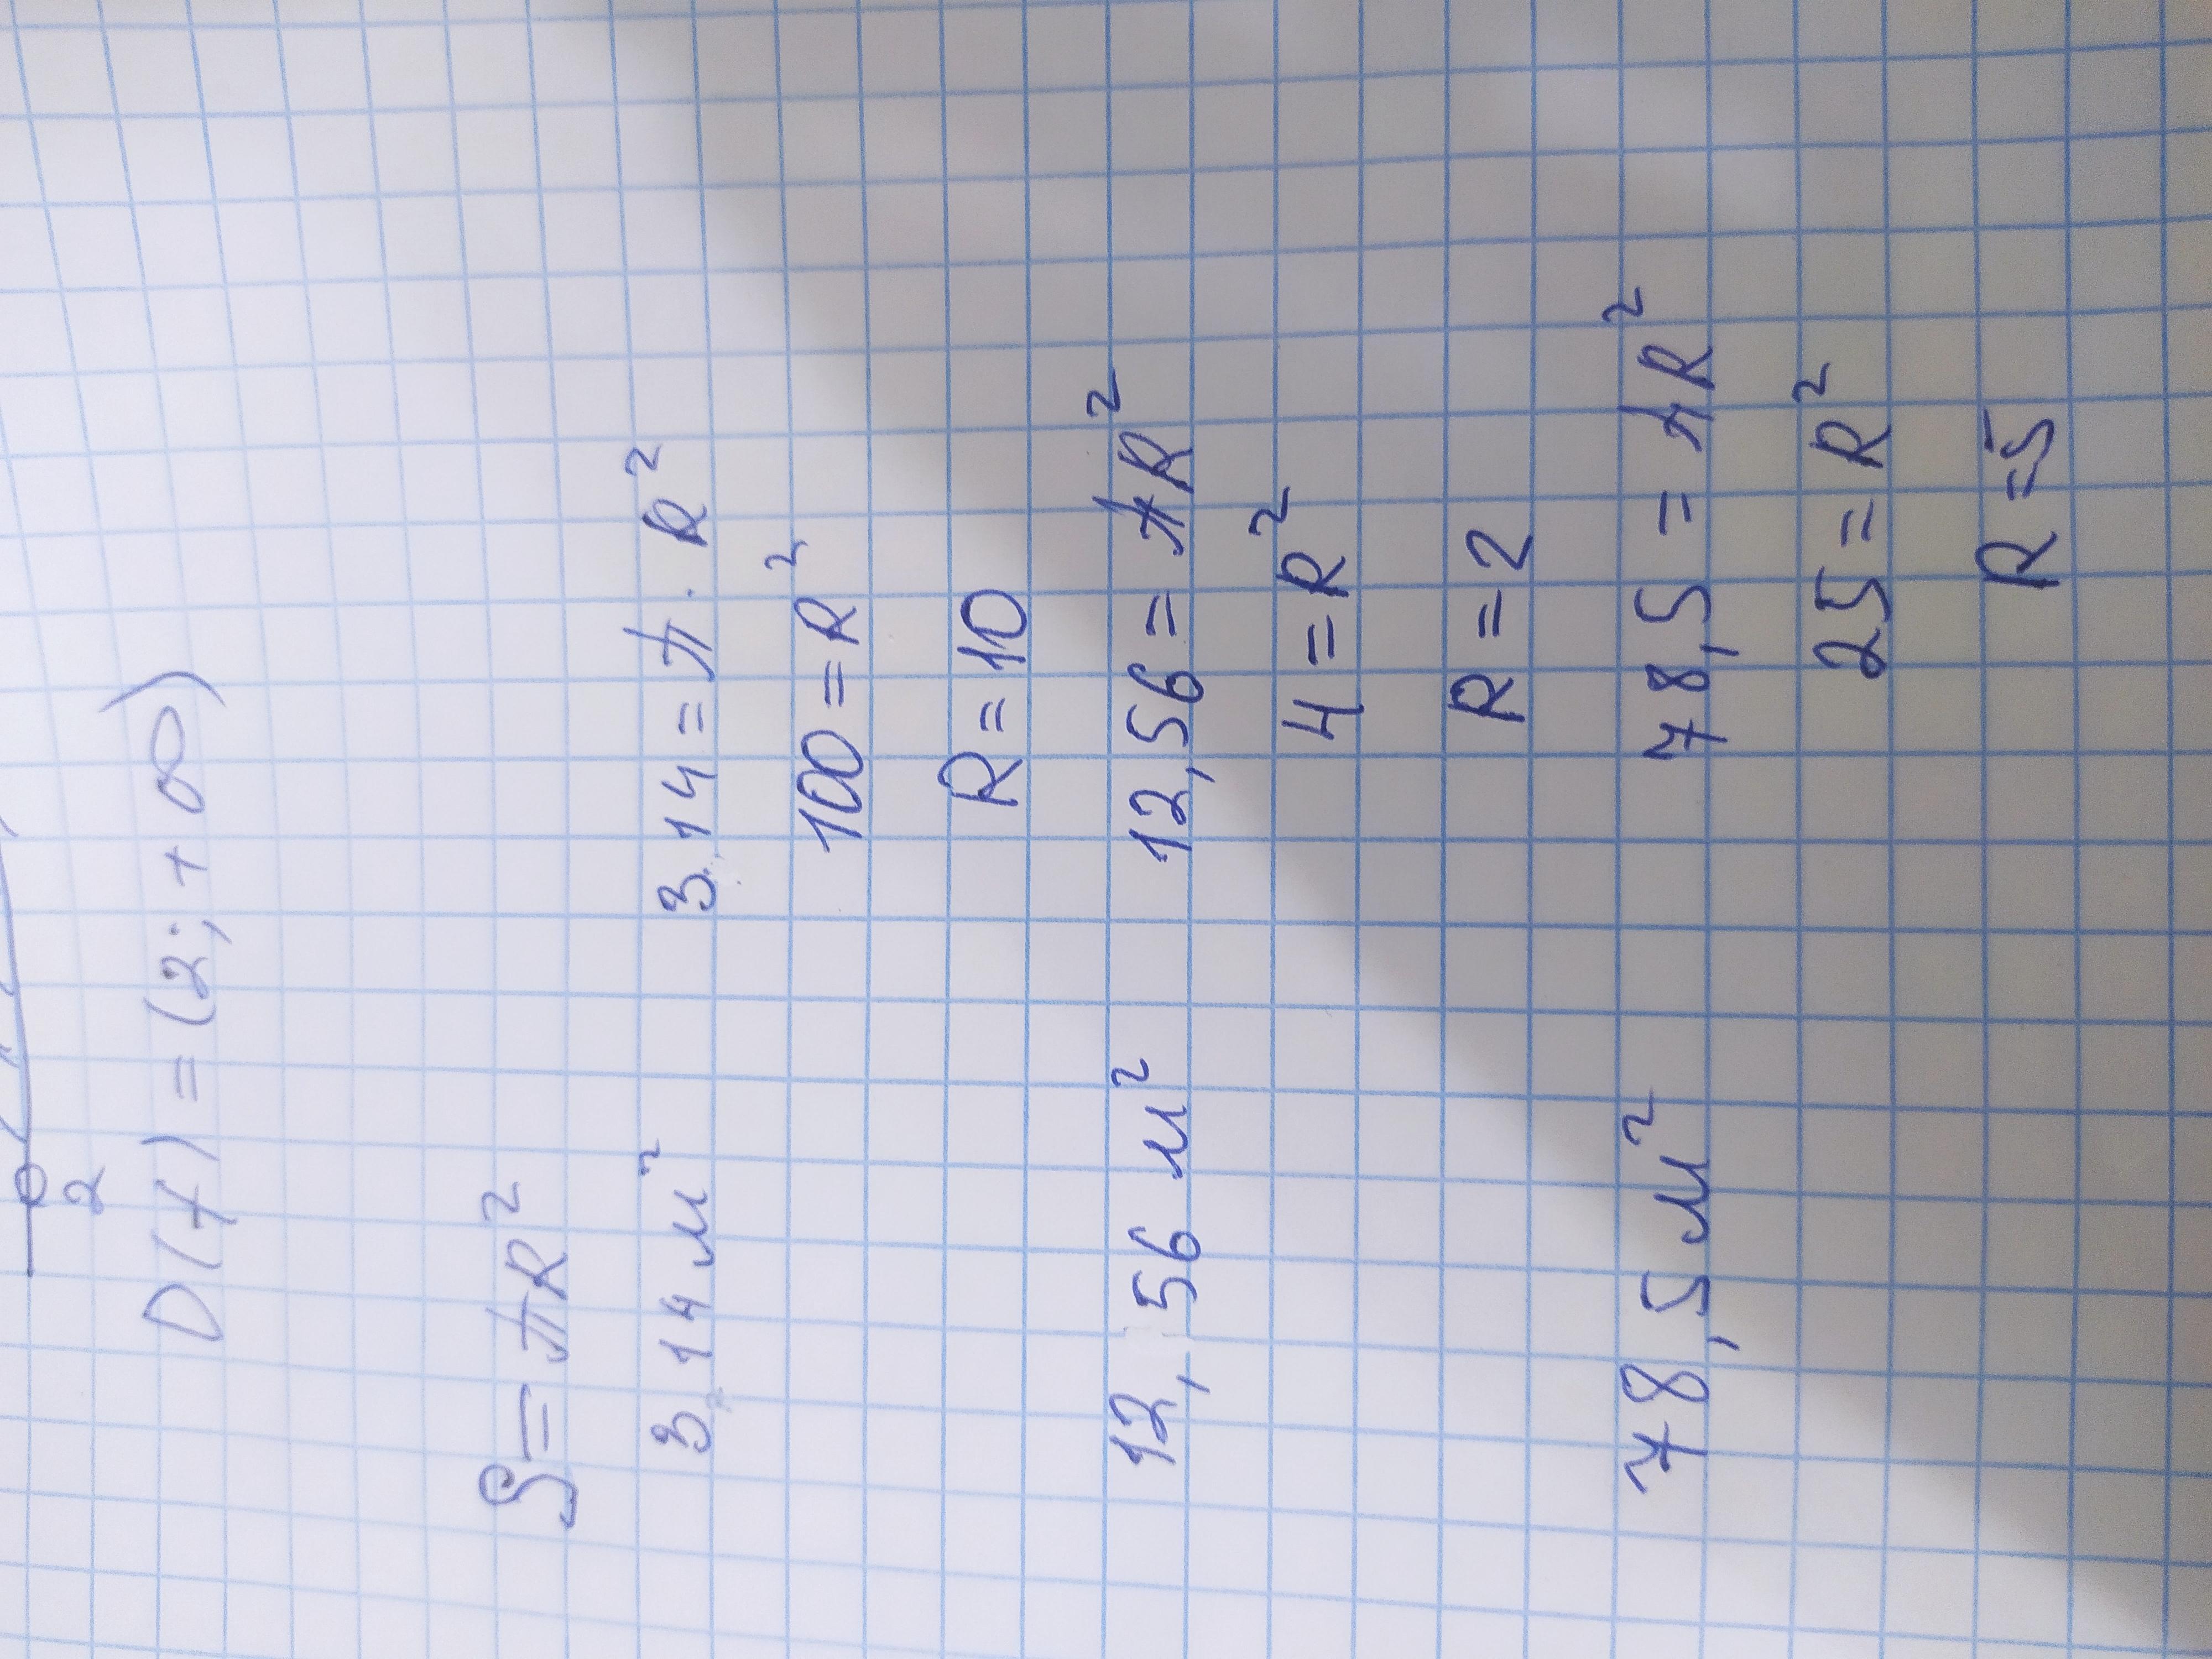 2
D(f) = (2; +∞)
S = πR²
3,14 м² 3,14 = π · R²
100 = R²
R = 10
12,56 м² 12,56 = πR²
4 = R²
R = 2
78,5 м² 78,5 = πR²
25 = R²
R = 5